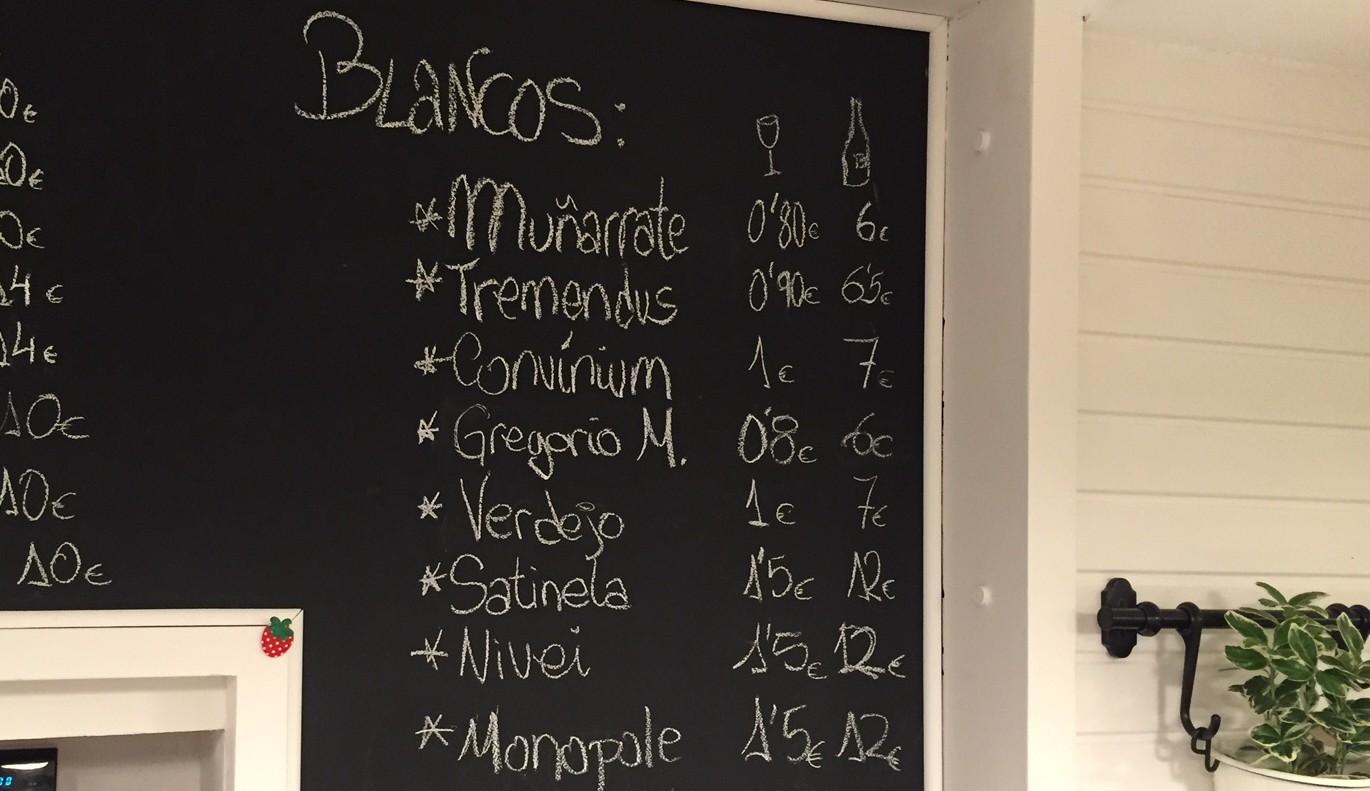 BLANCOS:
*Muñarrate 0'80€ 6€
*Tremendus 0'90€ 6'5€
*Convínium 1€ 7€
*Gregorio M. 0'8€ 6€
*Verdejo 1€ 7€
*Satinela 1'5€ 12€
*Nivei 1'5€ 12€
*Monopole 1'5€ 12€
0€
0€
0€
14€
14€
10€
10€
10€